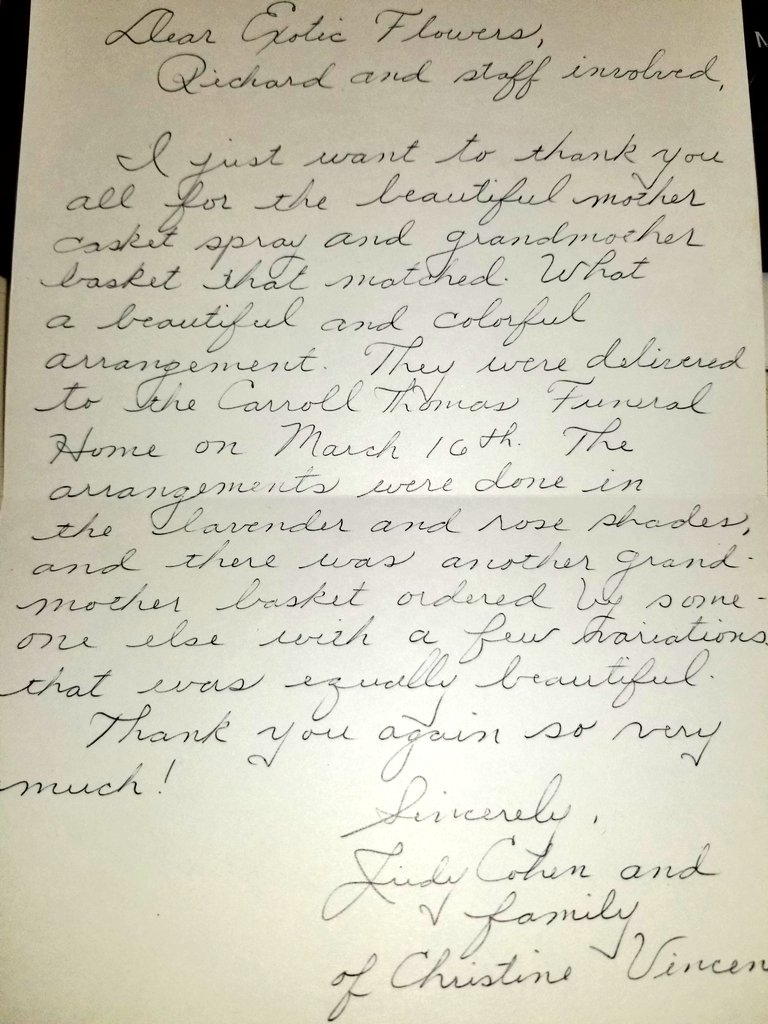 Dear Exotic Flowers,
Richard and staff involved,
I just want to thank you
all for the beautiful mother
casket spray and grandmother
basket that matched. What
a beautiful and colorful
arrangement. They were delivered
to the Carroll Thomas Funeral
Home on March 16th. The
arrangements were done in
the lavender and rose shades,
and there was another grand-
mother basket ordered by some-
one else with a few variations
that was equally beautiful.
Thank you again so very
much!
Sincerely,
Judy Cohen and
family
of Christine Vincen